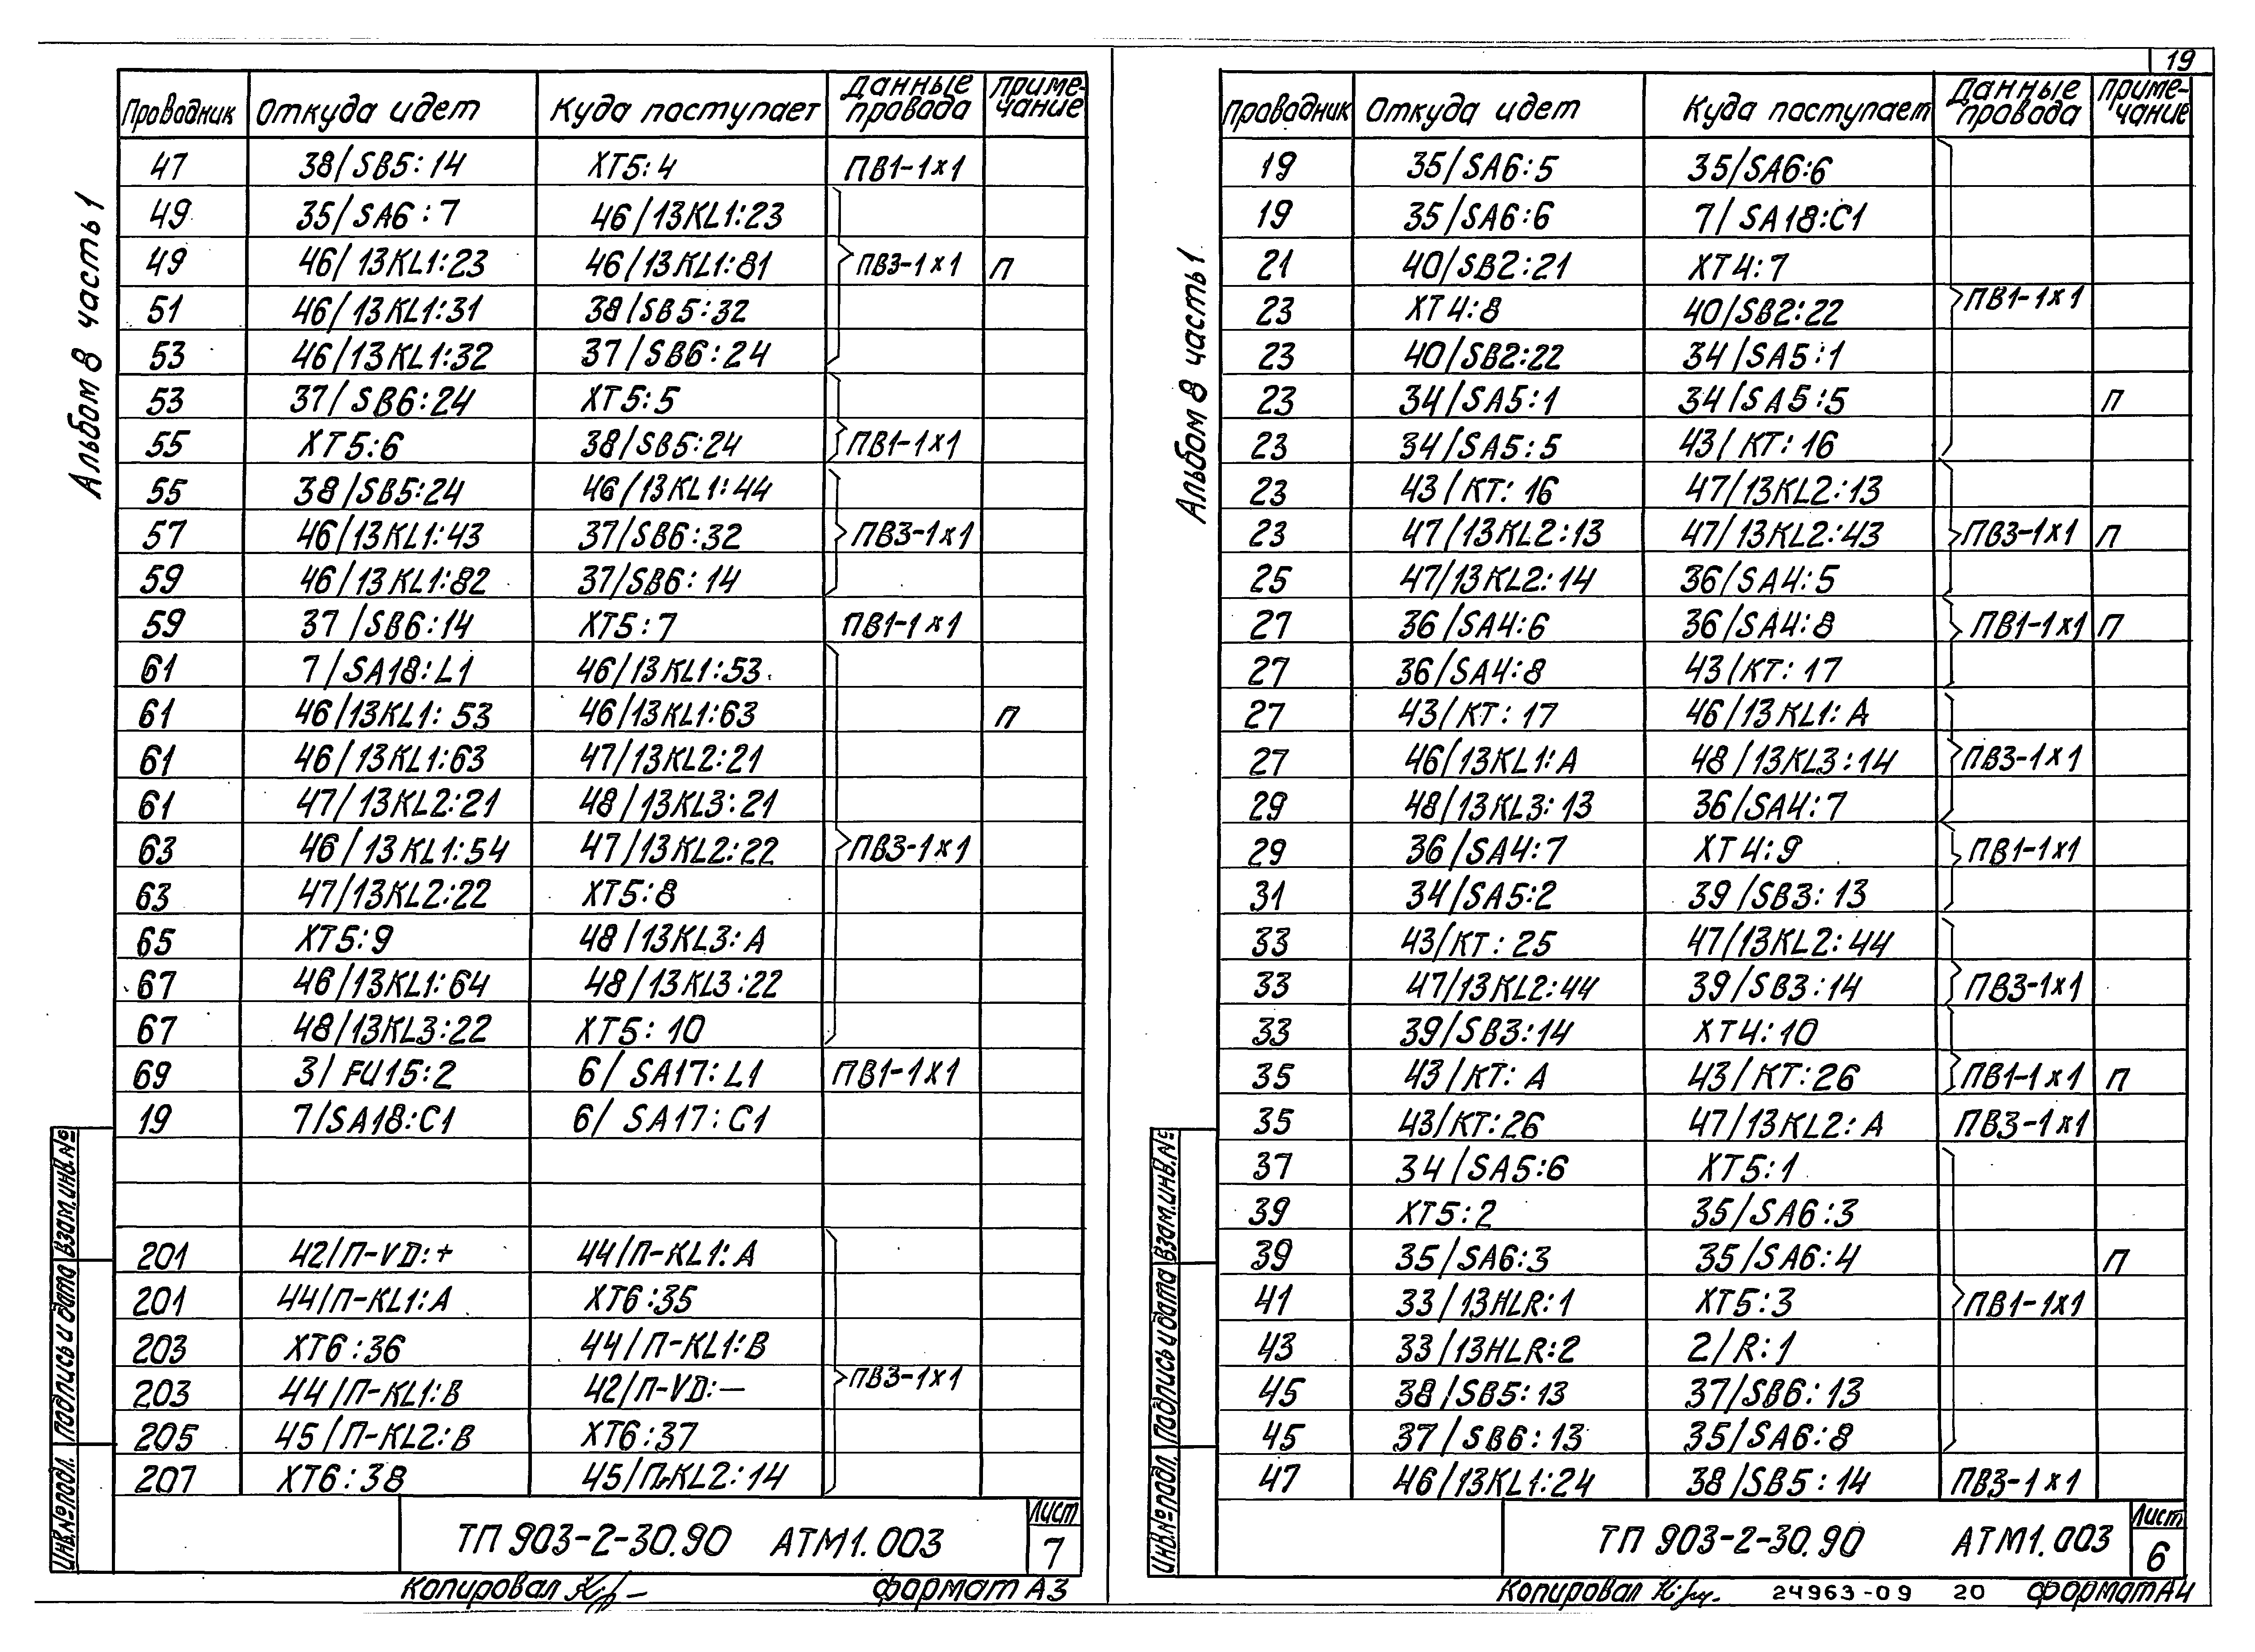 19
Альбом 8 часть 1
Проводник Откуда идет Куда поступает Данные провода Приме-чание
47 38/SB5:14 XT5:4 ПВ1-1х1
49 35/SA6:7 46/13KL1:23
49 46/13KL1:23 46/13KL1:81 ПВ3-1х1 П
51 46/13KL1:31 38/SB5:32
53 46/13KL1:32 37/SB6:24
53 37/SB6:24 XT5:5
55 XT5:6 38/SB5:24 ПВ1-1х1
55 38/SB5:24 46/13KL1:44
57 46/13KL1:43 37/SB6:32 ПВ3-1х1
59 46/13KL1:82 37/SB6:14
59 37/SB6:14 XT5:7 ПВ1-1х1
61 7/SA18:L1 46/13KL1:53
61 46/13KL1:53 46/13KL1:63 П
61 46/13KL1:63 47/13KL2:21
61 47/13KL2:21 48/13KL3:21
63 46/13KL1:54 47/13KL2:22 ПВ3-1х1
63 47/13KL2:22 XT5:8
65 XT5:9 48/13KL3:A
67 46/13KL1:64 48/13KL3:22
67 48/13KL3:22 XT5:10
69 3/FU15:2 6/SA17:L1 ПВ1-1х1
19 7/SA18:C1 6/SA17:C1
201 42/П-VD:+ 44/П-KL1:A
201 44/П-KL1:A XT6:35
203 XT6:36 44/П-KL1:B
203 44/П-KL1:B 42/П-VD:— ПВ3-1х1
205 45/П-KL2:B XT6:37
207 XT6:38 45/П-KL2:14
Взам.инв.№
Подпись и дата
Инв.№подл.
ТП 903-2-30.90 АТМ1.003
Лист
7
Копировал
формат А3
Альбом 8 часть 1
Проводник Откуда идет Куда поступает Данные провода Приме-чание
19 35/SA6:5 35/SA6:6
19 35/SA6:6 7/SA18:C1
21 40/SB2:21 XT4:7
23 XT4:8 40/SB2:22 ПВ1-1х1
23 40/SB2:22 34/SA5:1
23 34/SA5:1 34/SA5:5 П
23 34/SA5:5 43/KT:16
23 43/KT:16 47/13KL2:13
23 47/13KL2:13 47/13KL2:43 ПВ3-1х1 П
25 47/13KL2:14 36/SA4:5
27 36/SA4:6 36/SA4:8 ПВ1-1х1 П
27 36/SA4:8 43/KT:17
27 43/KT:17 46/13KL1:A
27 46/13KL1:A 48/13KL3:14 ПВ3-1х1
29 48/13KL3:13 36/SA4:7
29 36/SA4:7 XT4:9 ПВ1-1х1
31 34/SA5:2 39/SB3:13
33 43/KT:25 47/13KL2:44
33 47/13KL2:44 39/SB3:14 ПВ3-1х1
33 39/SB3:14 XT4:10
35 43/KT:A 43/KT:26 ПВ1-1х1 П
35 43/KT:26 47/13KL2:A ПВ3-1х1
37 34/SA5:6 XT5:1
39 XT5:2 35/SA6:3
39 35/SA6:3 35/SA6:4 П
41 33/13HLR:1 XT5:3 ПВ1-1х1
43 33/13HLR:2 2/R:1
45 38/SB5:13 37/SB6:13
45 37/SB6:13 35/SA6:8
47 46/13KL1:24 38/SB5:14 ПВ3-1х1
Взам.инв.№
Подпись и дата
Инв.№подл.
ТП 903-2-30.90 АТМ1.003
Лист
6
Копировал
24963-09 20 формат А4